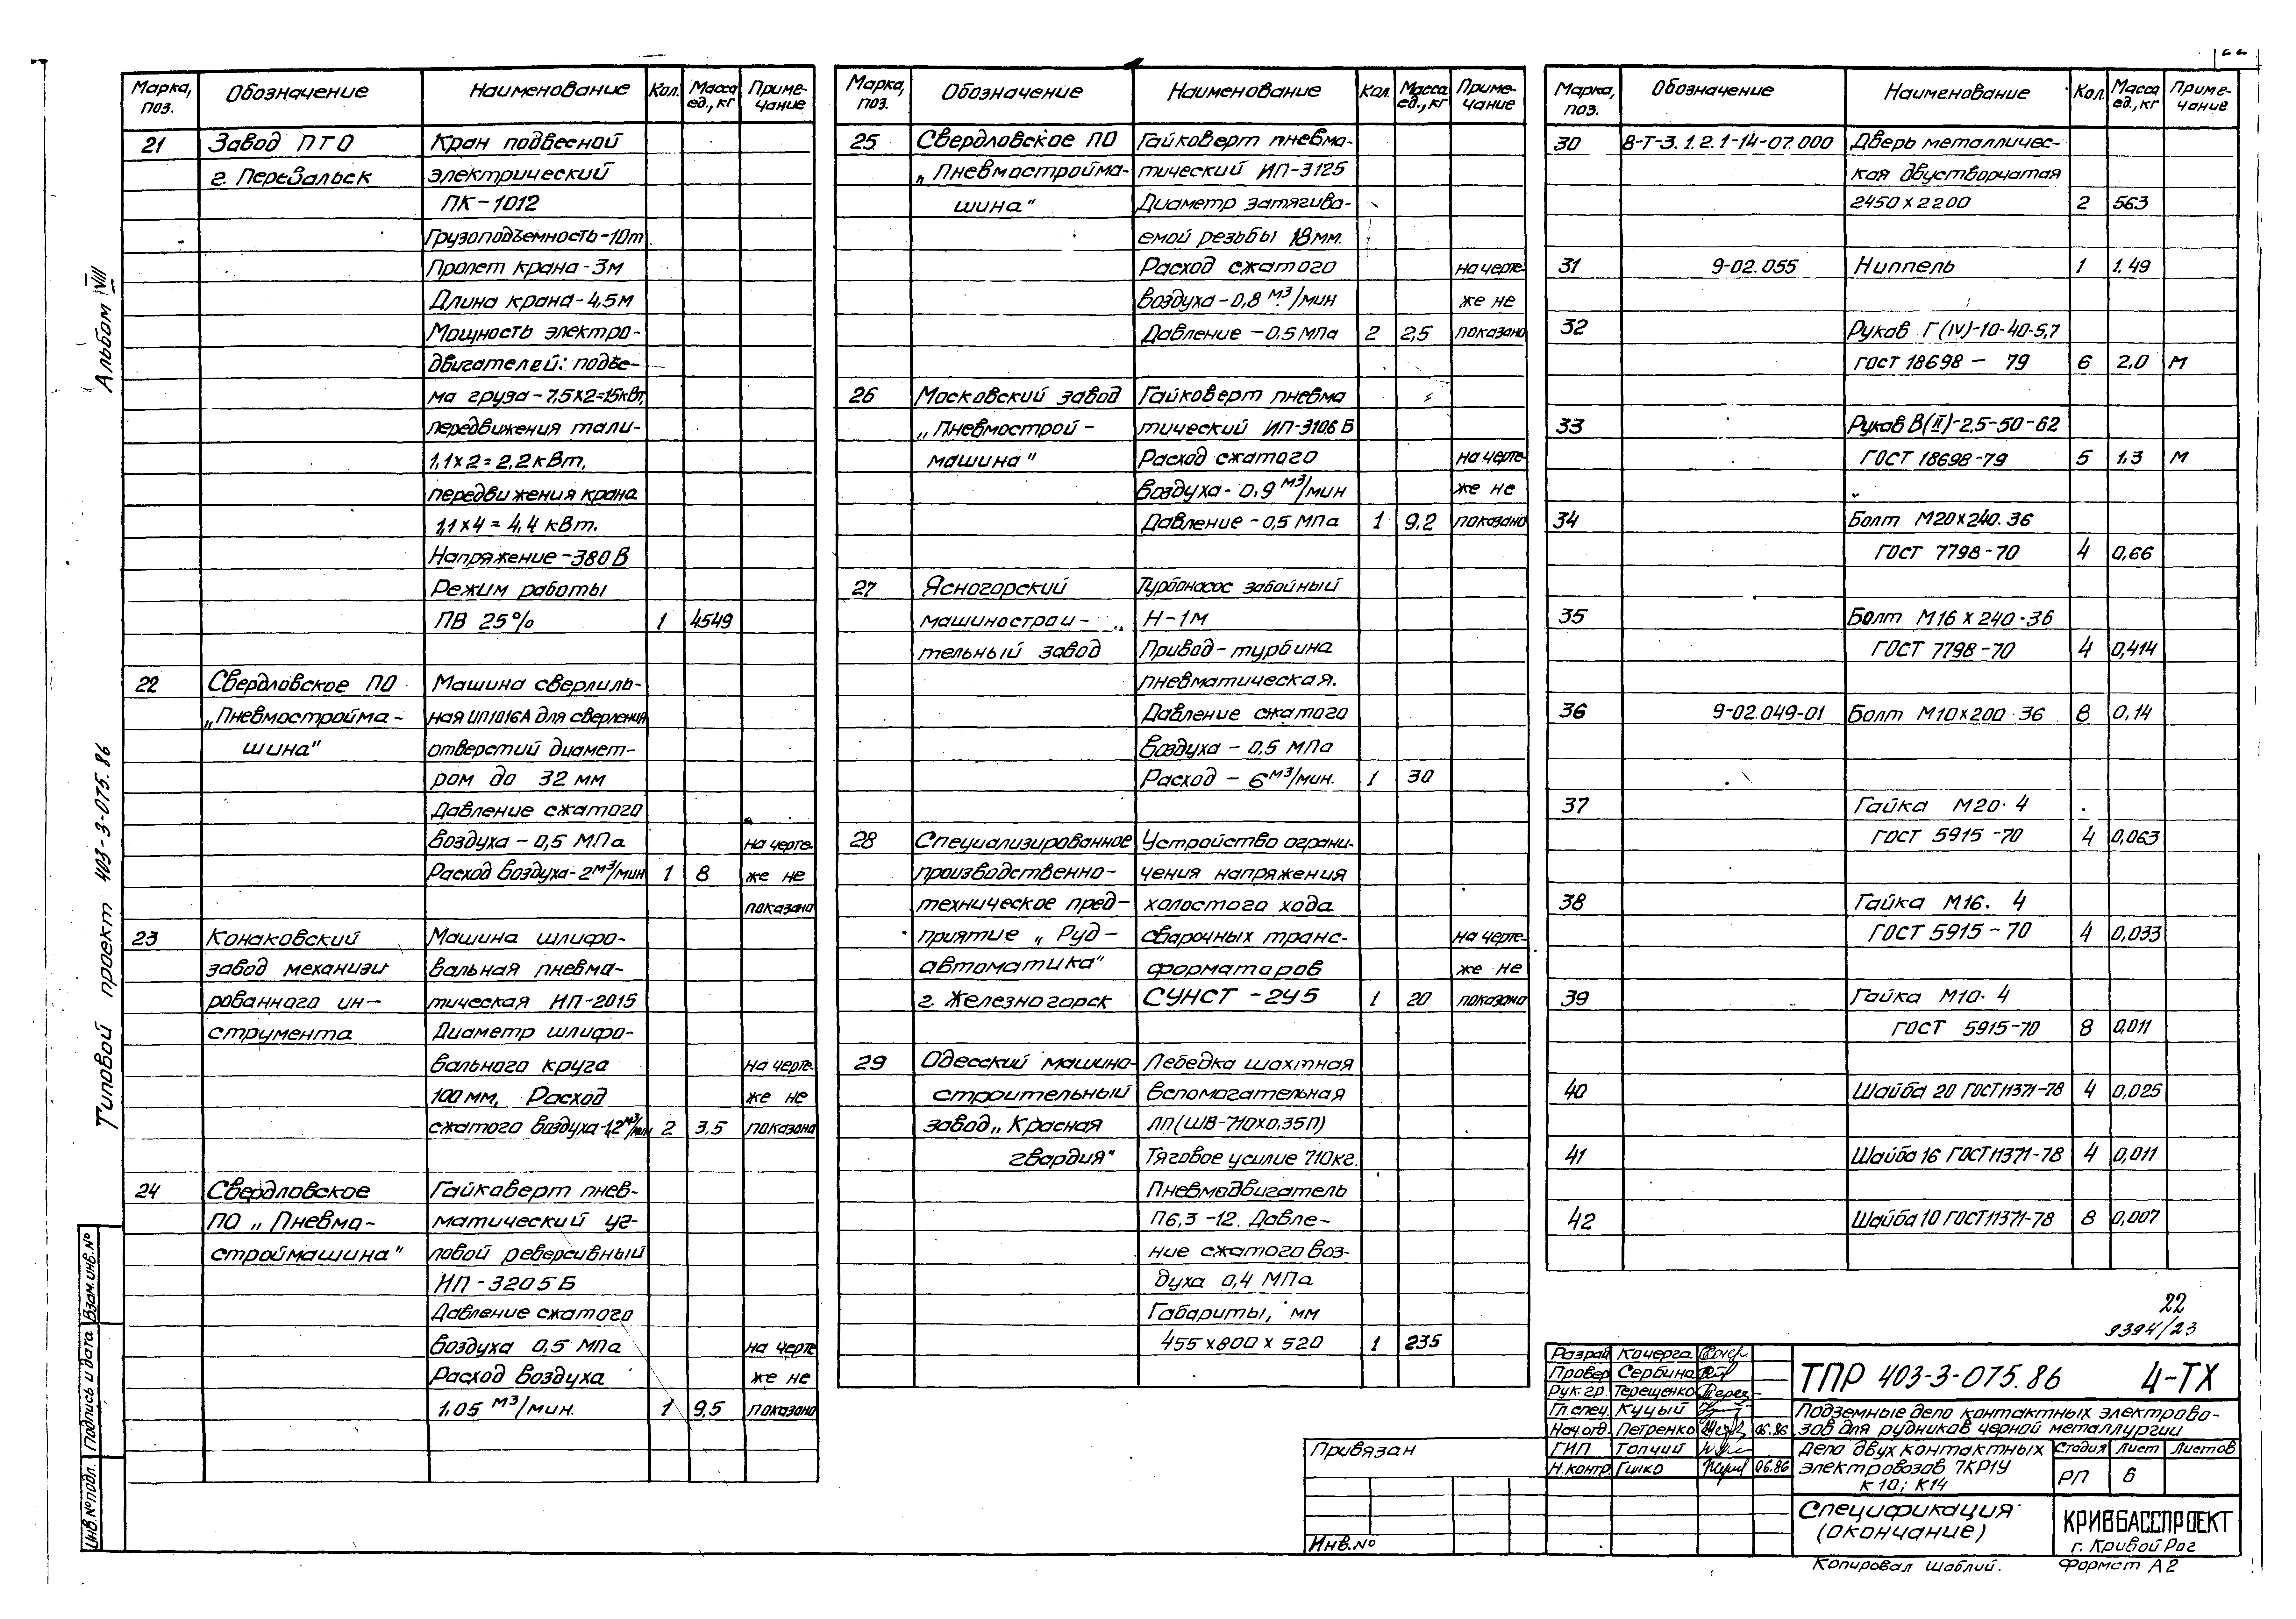 Марка, поз. Обозначение Наименование Кол. Масса ед., кг Приме-чание
21 Завод ПТО Кран подвесной
г. Перевальск электрический
ПК-1012
Грузоподъемность-10т
Пролет крана-3м
Длина крана-4,5м
Мощность электро-
двигателей: подъе-
ма груза-7,5х2=15кВт,
передвижения тали-
1,1х2=2,2кВт,
передвижения крана
1,1х4=4,4 кВт.
Напряжение-380В
Режим работы
ПВ 25% 1 4549
22 Свердловское ПО Машина сверлиль-
„Пневмостройма- ная ИП1016А для сверления
шина" отверстий диамет-
ром до 32 мм
Давление сжатого
воздуха-0,5 МПа на черте-
Расход воздуха-2м³/мин 1 8 же не
показано
23 Конаковский Машина шлифо-
завод механизи вальная пневма-
рованного ин- тическая ИП-2015
струмента Диаметр шлифо-
вального круга на черте-
100мм, Расход же не
сжатого воздуха-1,2м³/мин 2 3.5 показано
24 Свердловское Гайковерт пнев-
ПО „Пневма- матический уг-
строймашина" ловой реверсивный
ИП-3205Б
Давление сжатого
воздуха 0,5 МПа на черте
Расход воздуха же не
1,05 м³/мин. 1 9,5 показано
Марка, поз. Обозначение Наименование Кол. Масса ед., кг Приме-чание
25 Свердловское ПО Гайковерт пневма-
„Пневмостройма- тический ИП-3125
шина" Диаметр затягива-
емой резьбы 18мм.
Расход сжатого на черте-
воздуха-0,8 м³/мин же не
Давление-0.5 МПа 2 2,5 показано
26 Московский завод Гайковерт пневма
„Пневмострой- тический ИП-3106Б
машина" Расход сжатого на черте-
воздуха-0,9 м³/мин же не
Давление-0,5 МПа 1 9,2 показано
27 Ясногорский Турбонасос забойный
машинострои- Н-1м
тельный завод Привод-турбина
пневматическая.
Давление сжатого
воздуха-0,5 МПа
Расход-6м³/мин. 1 30
28 Специализированное Устройство ограни-
производственно- чения напряжения
техническое пред- холостого хода
приятие „Руд- сварочных транс- на черте-
автоматика" форматоров же не
г. Железногорск СУНСТ-2У5 1 20 показано
29 Одесский машино- Лебедка шахтная
строительный вспомогательная
завод„Красная ЛП(ШВ-710х0,35П)
гвардия" Тяговое усилие 710кг.
Пневмодвигатель
П6,3-12. Давле-
ние сжатого воз-
духа 0,4 МПа
Габариты, мм
455х800х520 1 235
Марка, поз. Обозначение Наименование Кол. Масса ед., кг Приме-чание
30 В-Т-3.1.2.1-14-07.000 Дверь металличес-
кая двустворчатая
2450х2200 2 563
31 9-02.055 Ниппель 1 1.49
32 Рукав Г(IV)-10-40-5,7
ГОСТ 18698-79 6 2,0 м
33 Рукав В(II)-2,5-50-62
ГОСТ 18698-79 5 1.3 м
34 Болт М20х240.36
ГОСТ 7798-70 4 0,66
35 Болт М16х240-36
ГОСТ 7798-70 4 0,414
36 9-02.049-01 Болт М10х200·36 8 0,14
37 Гайка М20·4
ГОСТ 5915-70 4 0,063
38 Гайка М16.4
ГОСТ 5915-70 4 0,033
39 Гайка М10·4
ГОСТ 5915-70 8 0,011
40 Шайба 20 ГОСТ11371-78 4 0,025
41 Шайба 16 ГОСТ11371-78 4 0,011
42 Шайба 10 ГОСТ11371-78 8 0,007
22
9394/23
Разраб Кочерга
Провер Сербина
Рук.гр. Терещенко
Гл.спец. Куцый
Нач.отд. Петренко 06.86
ГИП Топчий
Н.контр. Гишко 06.86
ТПР 403-3-075.86 4-ТХ
Подземные депо контактных электрово-
зов для рудников черной металлургии
Депо двух контактных
электровозов 7КР1У
К10; К14
Стадия Лист Листов
РП 6
Спецификация
(окончание)
КРИВБАССПРОЕКТ
г. Кривой Рог
Копировал Шаблий. Формат А2
Привязан
Инв.№
Альбом VIII
Типовой проект 403-3-075.86
Взам.инв.№
Подпись и дата
Инв.№подл.